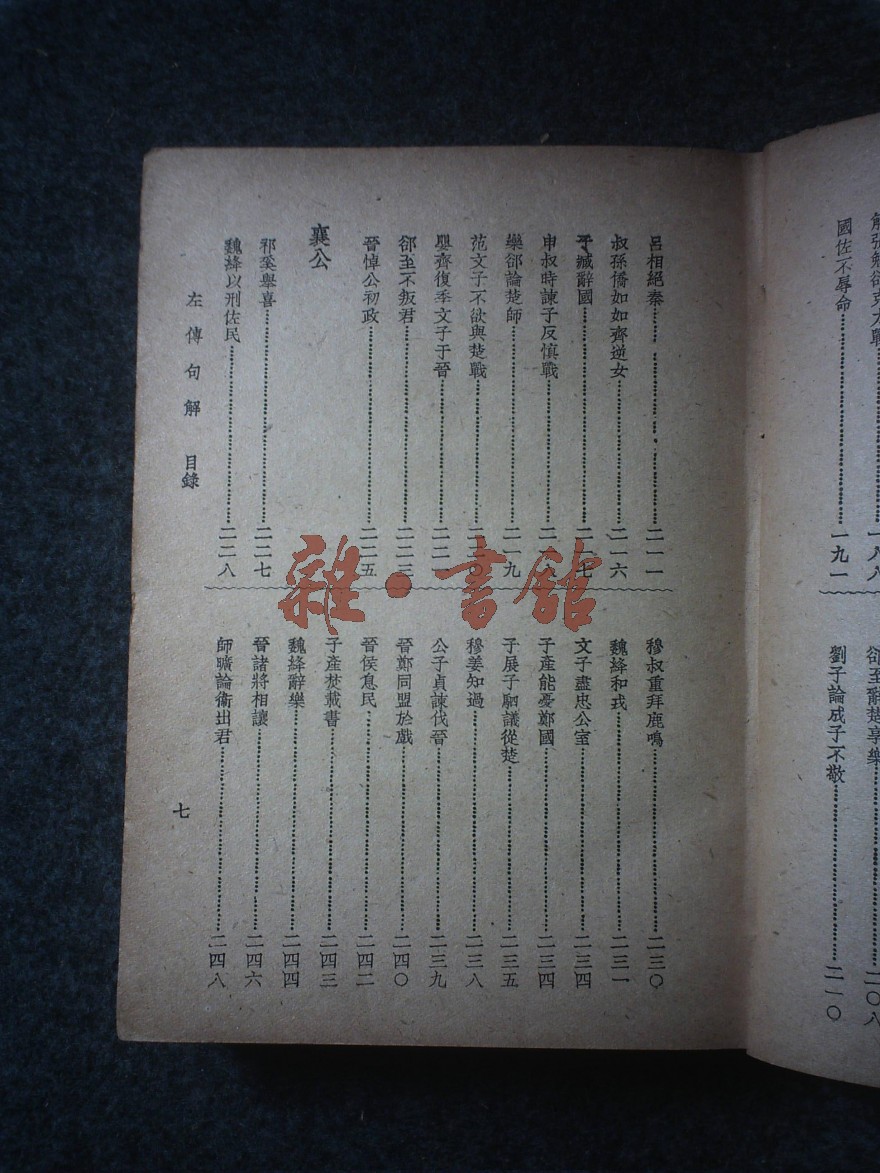 國佐不辱命……一九一
郤至辭楚享樂……二〇八
劉子論成子不敬……二一〇
呂相絕秦……二一一
叔孫僑如如齊逆女……二一六
子臧辭國……二一七
申叔時諫子反慎戰……二一八
欒郤論楚師……二一九
范文子不欲與楚戰……二二〇
嬰齊復季文子于晉……二二一
郤至不叛君……二二三
晉悼公初政……二二五
襄公
祁奚舉喜……二二七
魏絳以刑佐民……二二八
穆叔重拜鹿鳴……二三〇
魏絳和戎……二三一
文子盡忠公室……二三四
子產能憂鄭國……二三四
子展子駟議從楚……二三五
穆姜知過……二三八
公子貞諫伐晉……二三九
晉鄭同盟於戲……二四〇
晉侯息民……二四二
子產焚載書……二四三
魏絳辭樂……二四四
晉諸將相讓……二四六
師曠論衛出君……二四八
左傳句解 目錄
七
雜·書館